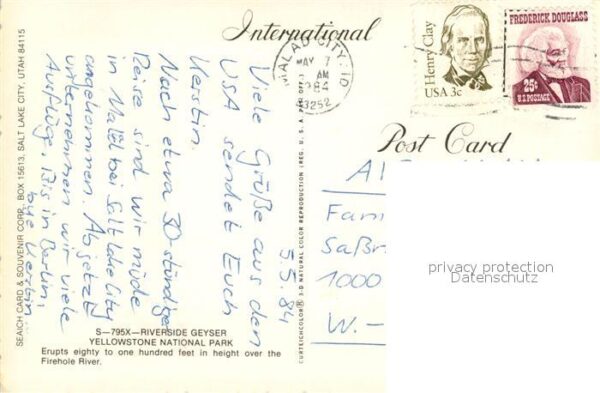 International
Post Card
MALAD CITY, ID
MAY 7
AM
1984
83252
Henry Clay
USA 3c
FREDERICK DOUGLASS
25¢
U.S. POSTAGE
5.5.84
Viele Grüße aus den
USA sendet Euch
Kerstin.
Nach etwa 30-stündiger
Reise sind wir müde
in Malad bei Salt Lake City
angekommen. Ab jetzt
unternehmen wir viele
Ausflüge. Bis in Berlin,
Eure Kerstin
Fami
Saßn
1000
W.-
privacy protection
Datenschutz
SEAICH CARD & SOUVENIR CORP., BOX 15613, SALT LAKE CITY, UTAH 84115
CURTEICHCOLOR® 3-D NATURAL COLOR REPRODUCTION (REG. U.S.A. PAT. OFF.)
S—795X—RIVERSIDE GEYSER
YELLOWSTONE NATIONAL PARK
Erupts eighty to one hundred feet in height over the
Firehole River.